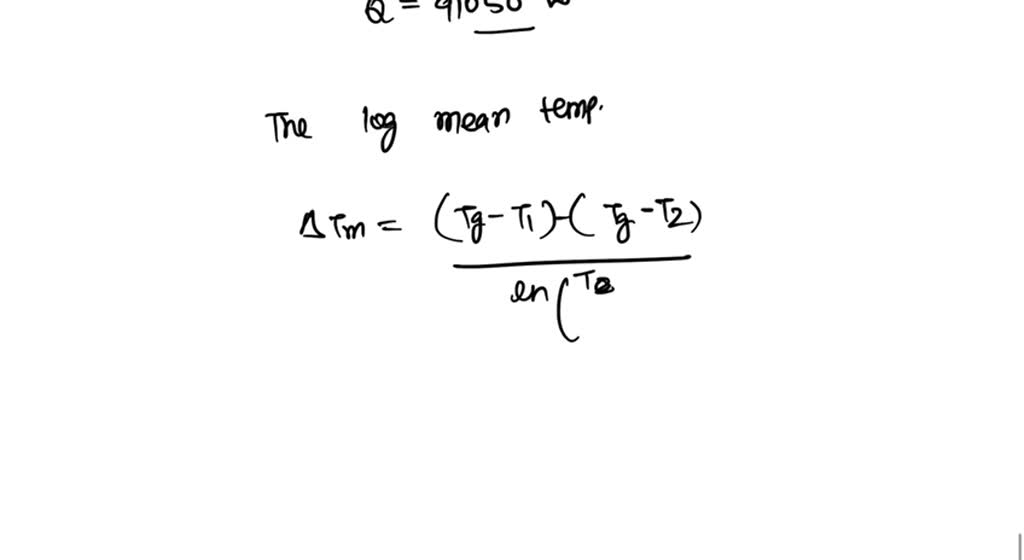 Q = 91050 W
The log mean temp.
ΔTm = (Tg-T1)-(Tg-T2)
ln(T2